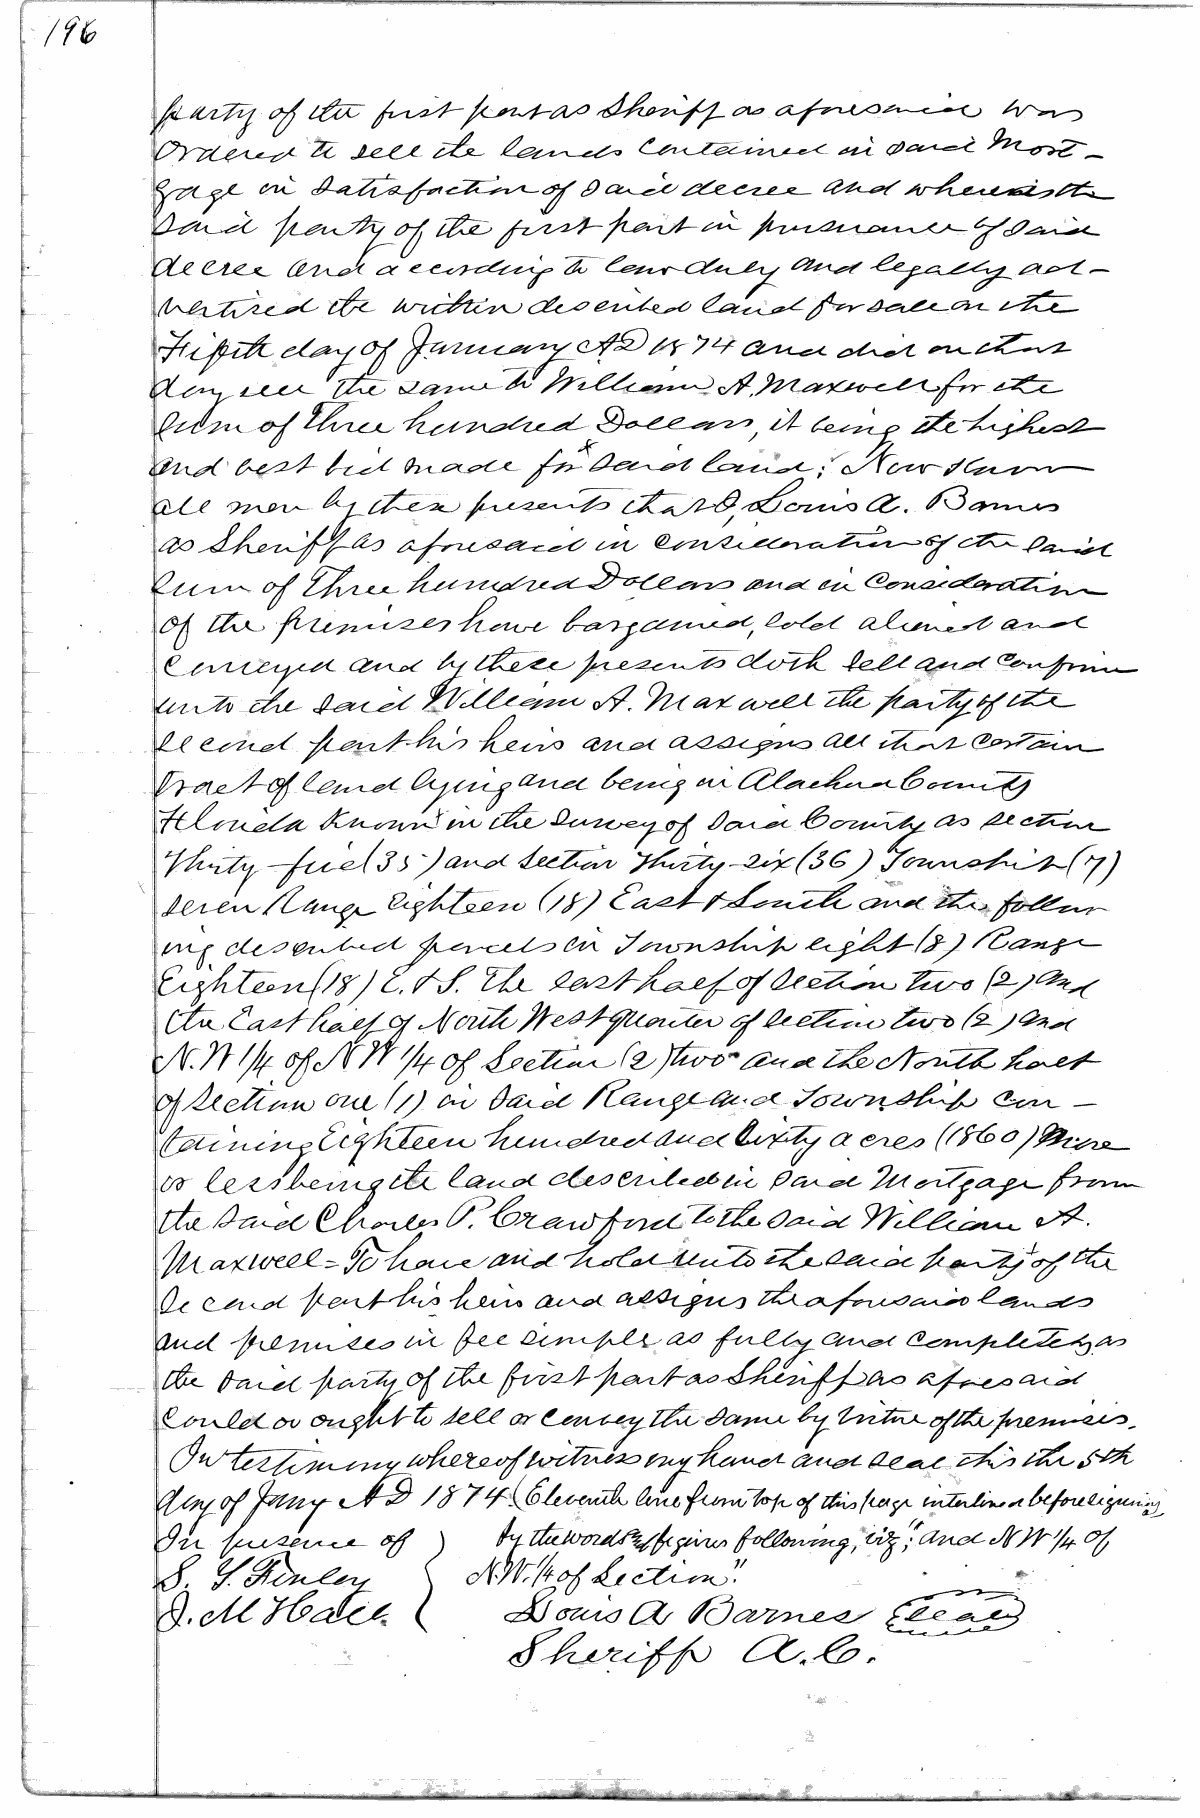 196
party of the first part as Sheriff as aforesaid was
Ordered to sell the lands Contained in said Mort-
gage in satisfaction of said decree and whereas the
said party of the first part in pursuance of said
decree and according to law duly and legally ad-
vertised the within described land for sale on the
Fifith day of January AD 1874 and did on that
day sell the same to William A. Maxwell for the
sum of Three hundred Dollars, it being the highest
and best bid made for said land; Now Know
all men by these presents that I, Louis A. Barnes
as Sheriff as aforesaid in consideration of the said
sum of Three hundred Dollars and in Consideration
of the premises have bargained, sold aliened and
Conveyed and by these presents doth sell and confirm
unto the said William A. Maxwell the party of the
second part his heirs and assigns all that certain
tract of land lying and being in Alachua County
Florida Known in the survey of said County as section
Thirty-five (35) and section Thirty six (36) Township (7)
seven Range Eighteen (18) East & South and the follow
ing described parcels in Township eight (8) Range
Eighteen (18) E. & S. The east half of section two (2) and
the East half of North West quarter of section two (2) and
N.W 1/4 of N W 1/4 of Section (2) two and the North half
of section one (1) in said Range and Township con-
taining Eighteen hundred and sixty acres (1860) More
or less being the land described in said Mortgage from
the said Charles P. Crawford to the said William A.
Maxwell = To have and hold unto the said party of the
second part his heirs and assigns the aforesaid lands
and premises in fee simple as fully and completely as
the said party of the first part as Sheriff as aforesaid
could or ought to sell or convey the same by virtue of the premises.
In testimony whereof witness my hand and seal this the 5th
day of Jany AD 1874 (Eleventh line from top of this page interlined before signing
In presence of } by the words and figures following, viz; "and N W 1/4 of
S. Y. Finley N.W. 1/4 of Section."
J. M Hall. Louis A Barnes Seal
Sheriff A.C.